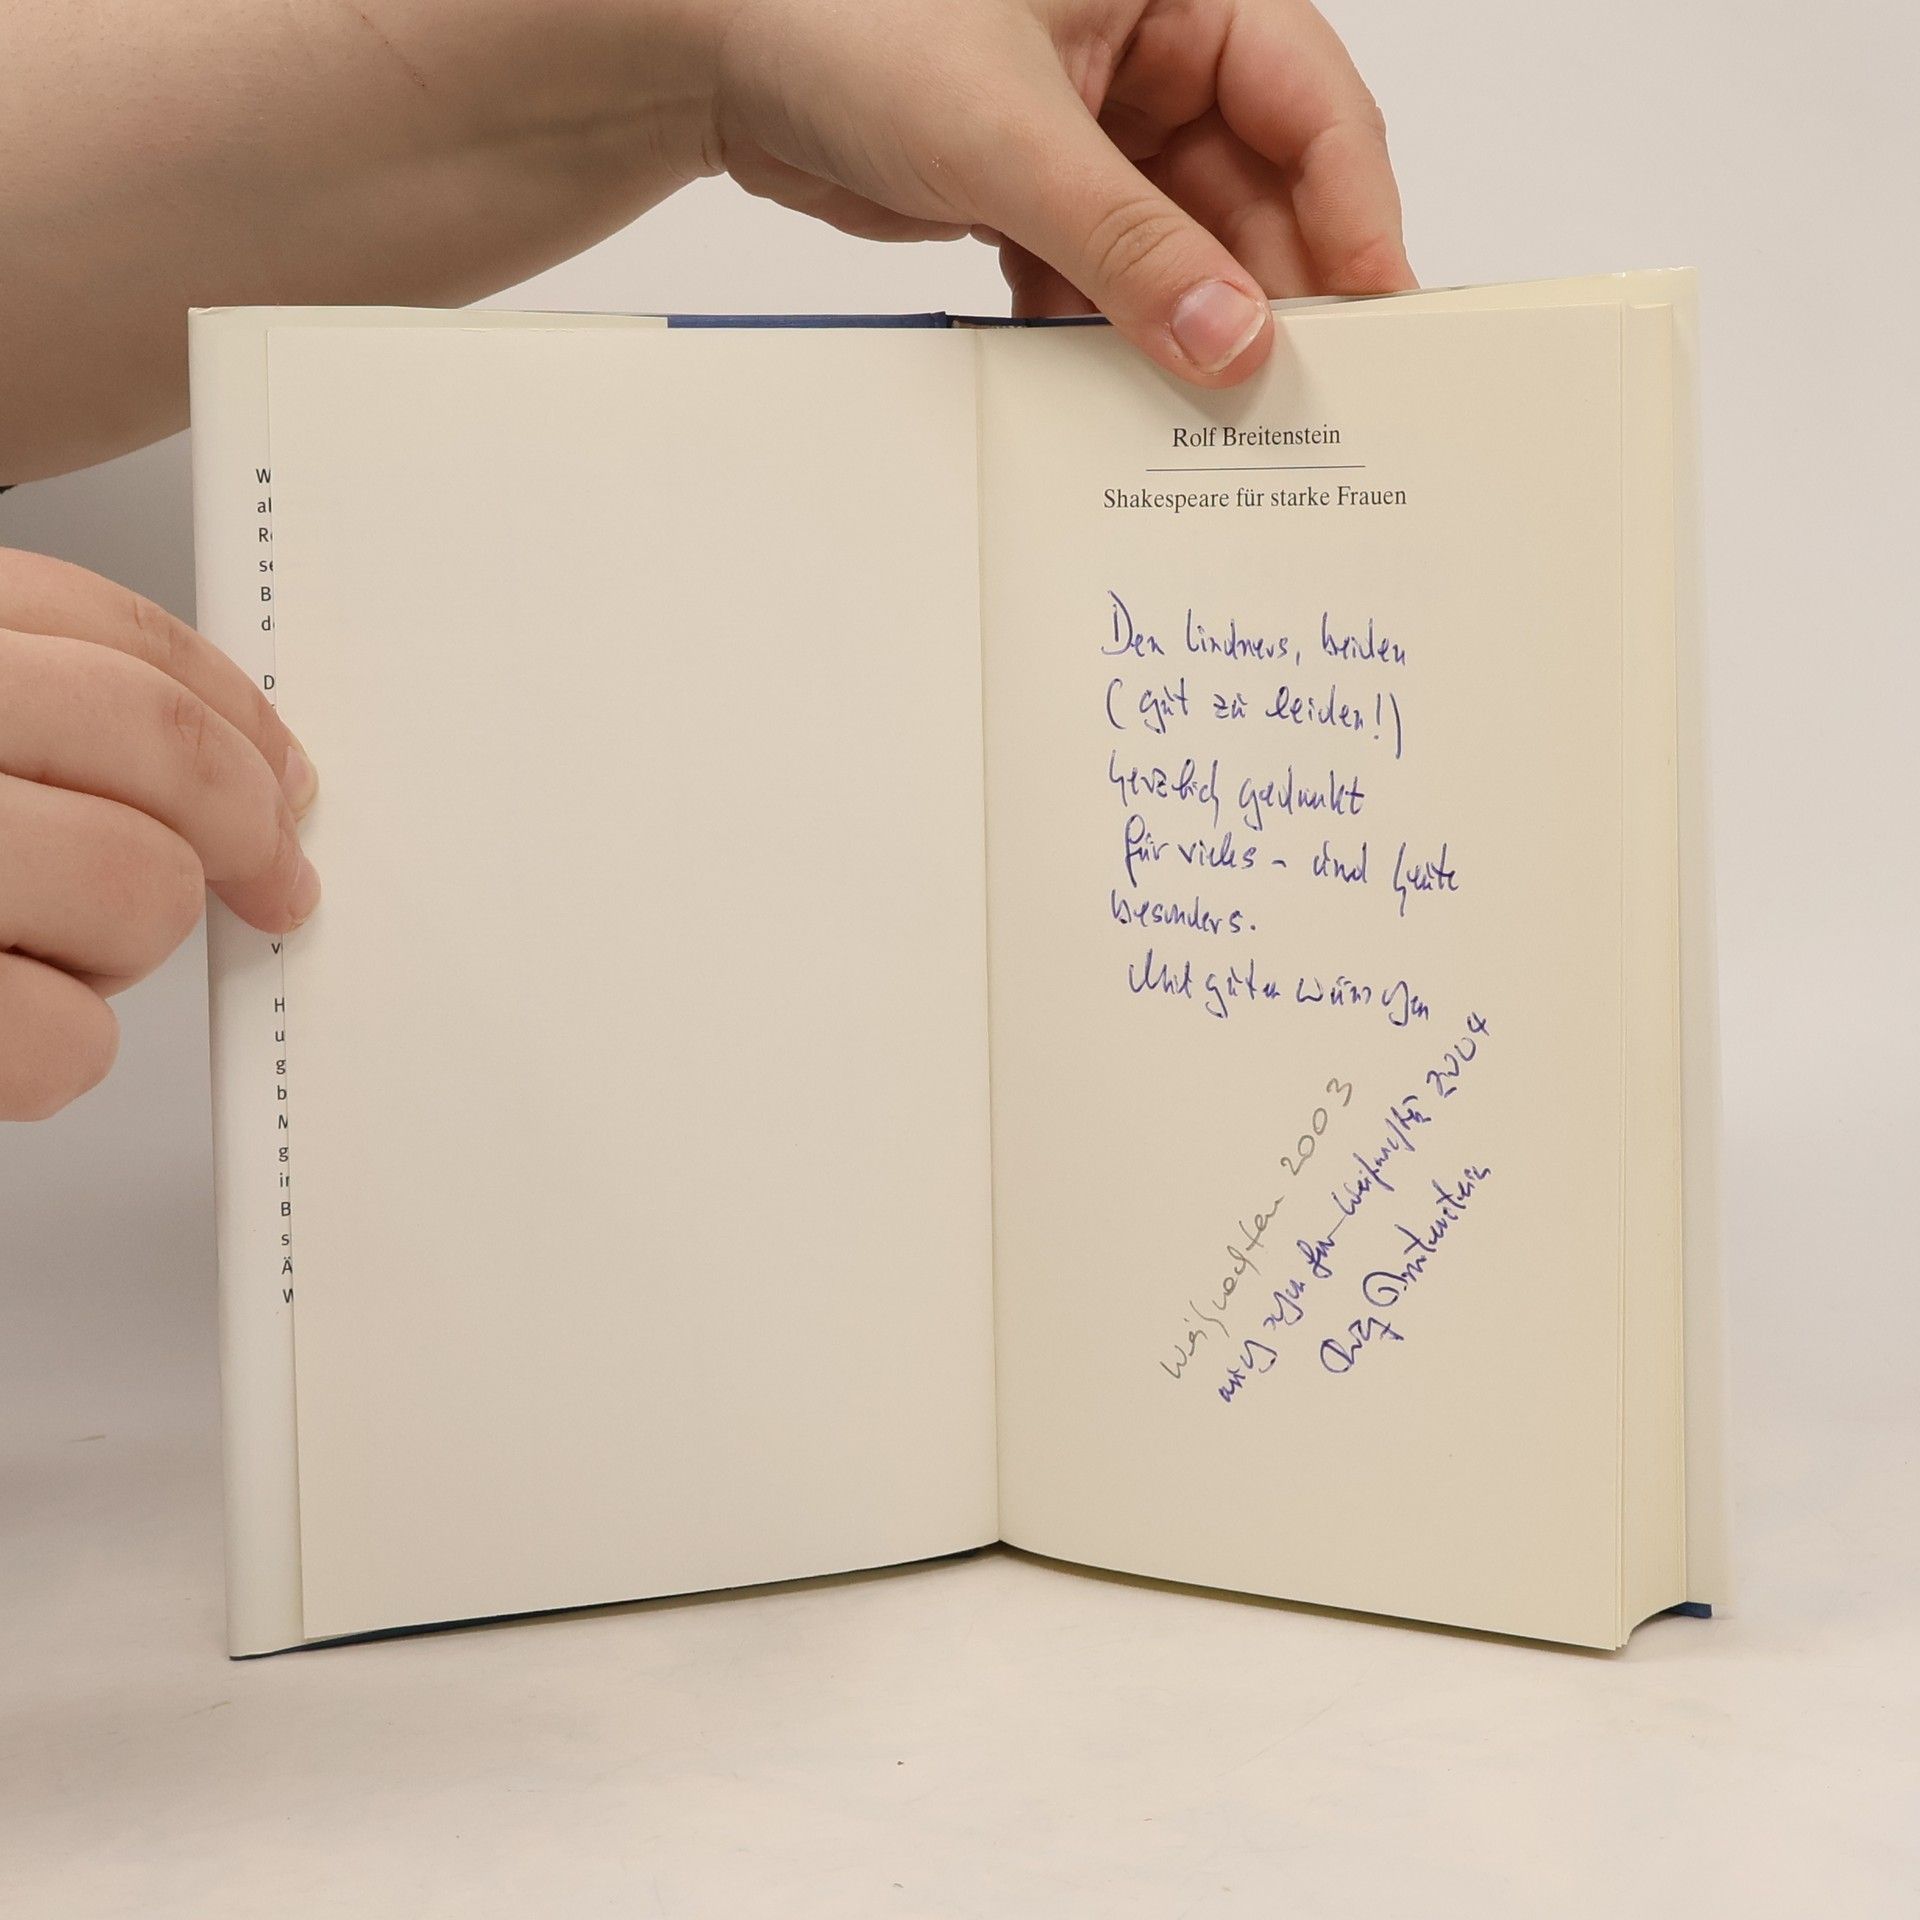 W
al
Re
se
B
de
D
v
H
u
g
b
M
g
in
B
s
Ä
W
Rolf Breitenstein
Shakespeare für starke Frauen
Den Lindners, beiden
(gut zu leiden!)
herzlich gedankt
für vieles – und heute
besonders.
Mit guten Wünschen
Weihnachten 2003
auch schon für Weihnachten 2004
Breitenstein